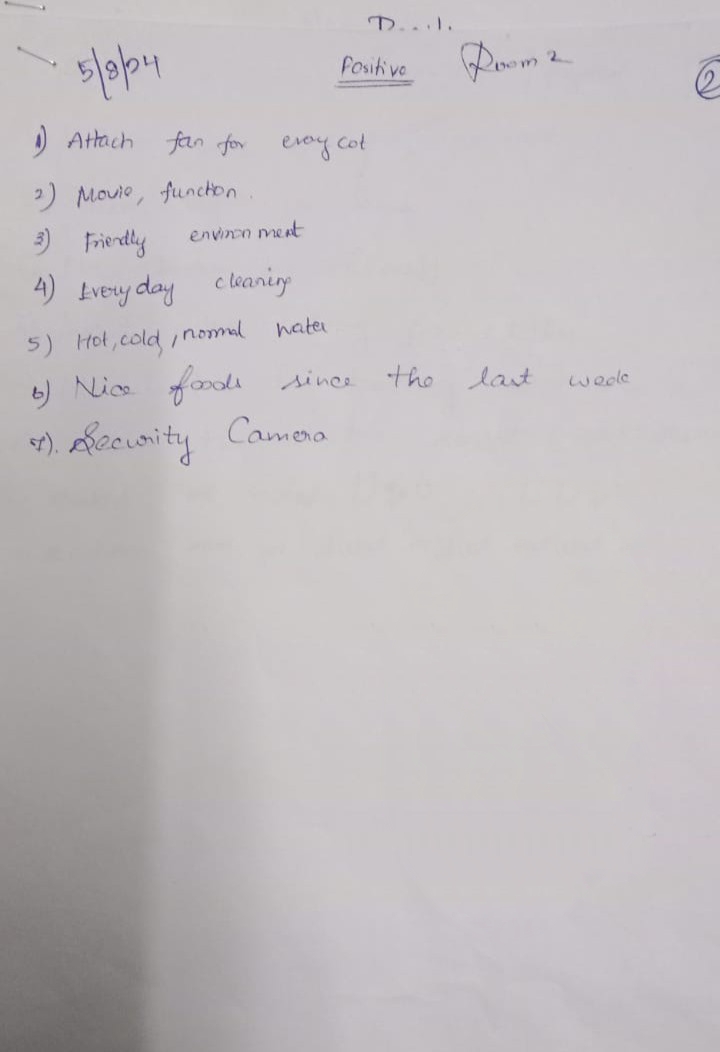 5/8/24
Positive Room 2
2
1) Attach fan for every cot
2) Movie, function.
3) Friendly environment
4) Every day cleaning
5) Hot, cold, normal water
6) Nice foods since the last week
7). Security Camera